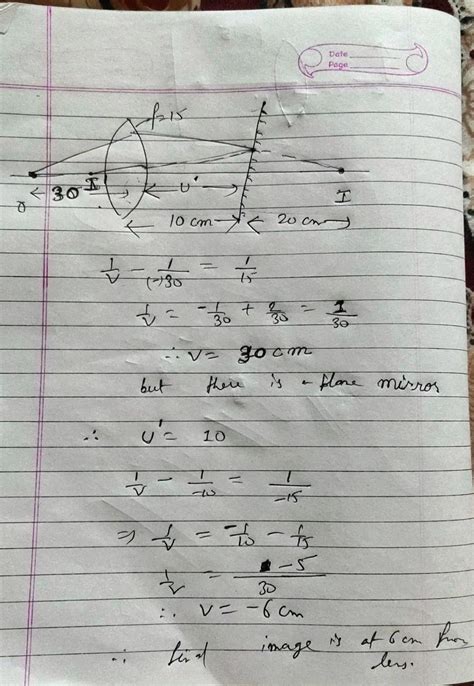 Date
Page
f=15
30
I
u'
I
O
10 cm
20 cm
1/v - 1/(-)30 = 1/15
1/v = -1/30 + 2/30 = 1/30
∴ v = 30 cm
but there is a plane mirror
∴ u' = 10
1/v - 1/-10 = 1/-15
⇒ 1/v = -1/10 - 1/15
1/v = -5/30
∴ v = -6 cm
∴ final image is at 6 cm from
lens.